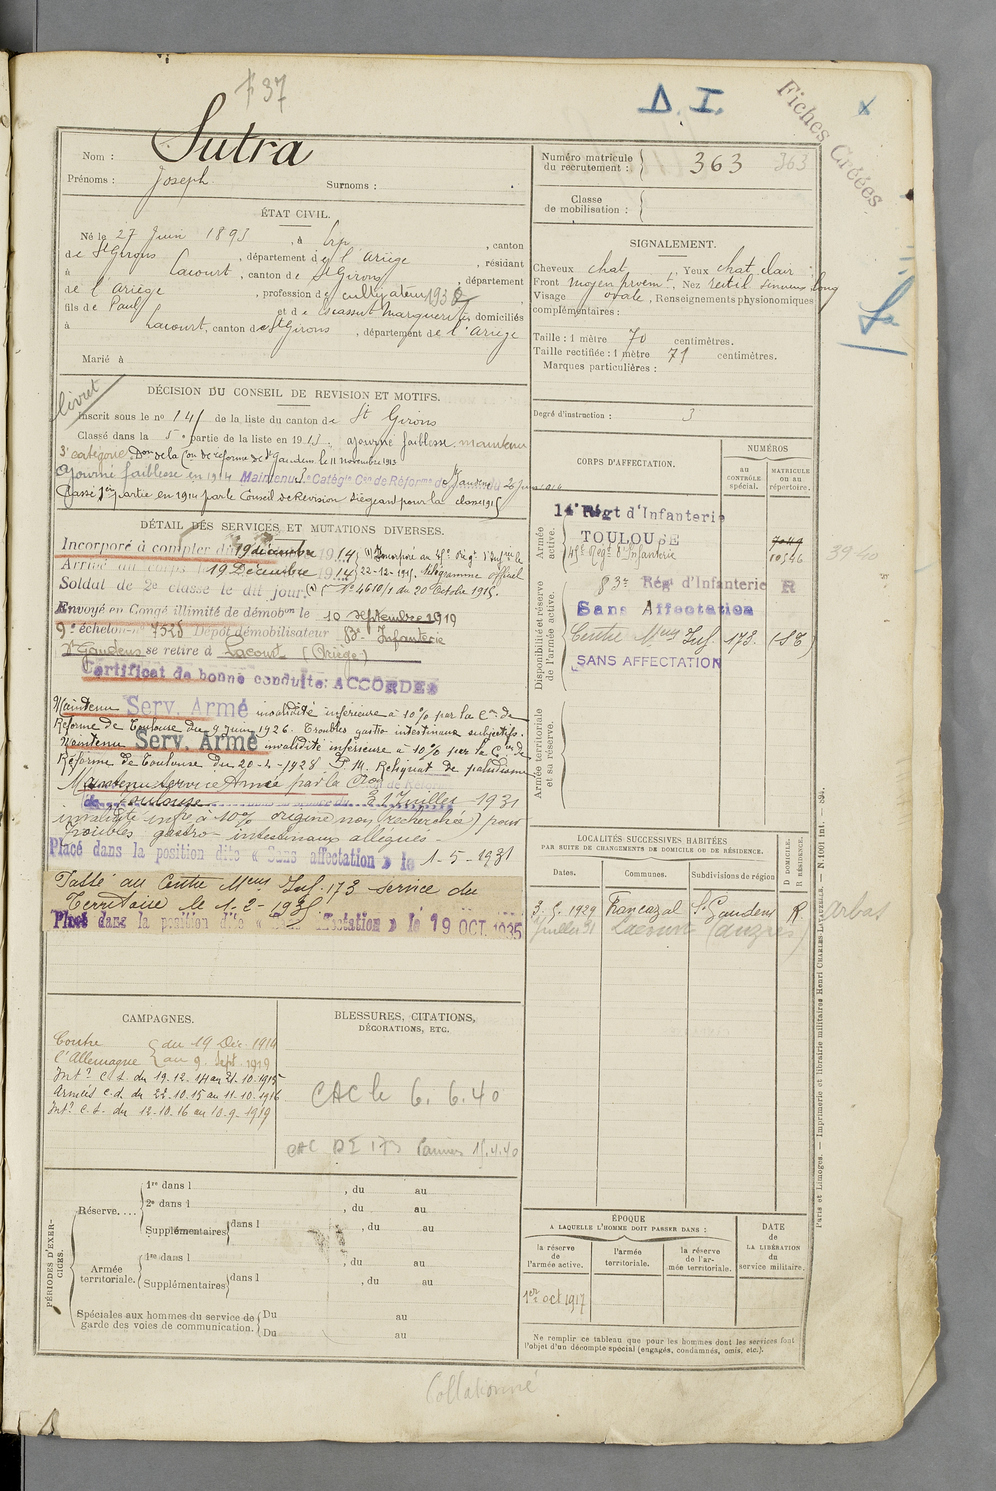 37
D. I.
Fiches Créées
Nom : Sutra
Prénoms : Joseph Surnoms :
Numéro matricule du recrutement : 363 363
Classe de mobilisation :
ÉTAT CIVIL.
Né le 27 Juin 1893, à Erp, canton
de St Girons, département de l'Ariège, résidant
à Lacourt, canton de St Girons, département
de l'Ariège, profession de cultivateur
fils de Paul et de Escassut Marguerite, domiciliés
à Lacourt, canton de St Girons, département de l'Ariège
Marié à
SIGNALEMENT.
Cheveux chat, Yeux chat. clair
Front moyen proem., Nez rectil. sinueux long
Visage ovale, Renseignements physionomiques
complémentaires :
Taille : 1 mètre 70 centimètres.
Taille rectifiée : 1 mètre 71 centimètres.
Marques particulières :
Degré d'instruction : 3
livret
DÉCISION DU CONSEIL DE REVISION ET MOTIFS.
Inscrit sous le no 141 de la liste du canton de St Girons
Classé dans la 5e partie de la liste en 1913, ajourné faiblesse, maintenu
3e catégorie. Don de la Con de réforme de St Gaudens le 11 novembre 1913
Ajourné faiblesse en 1914 Maintenu 3e Catégie Con de Réforme de St Gaudens
Classé 1ère partie en 1914 par le Conseil de Révision siégeant pour la classe 1915
DÉTAIL DES SERVICES ET MUTATIONS DIVERSES.
Incorporé à compter du 19 décembre 1914 (1) Incorporé au
Arrivé au corps le 19 Décembre 1914 22-12-1915. télégramme officiel
Soldat de 2e classe le dit jour. (1) No 4610/1 du 20 Octobre 1915.
Envoyé en Congé illimité de démobon le 10 septembre 1919
9e échelon no 7525 Dépôt démobilisateur 83e Infanterie
St Gaudens se retire à Lacourt (Ariège)
Certificat de bonne conduite: ACCORDÉ
Maintenu Serv. Armé invalidité inférieure à 10% par la Con de
Réforme de Toulouse du 9 Juin 1926. Troubles gastro intestinaux subjectifs.
Maintenu Serv. Armé invalidité inférieure à 10% par la Con de
Réforme de Toulouse du 20-1-1928 P.M. Reliquat de paludisme
Maintenu service Armé par la Con de Réforme
de Toulouse 21 Juillet 1931
invalidité infre à 10% origine non (recherchée) pour
troubles gastro-intestinaux allégués
Placé dans la position dite « Sans affectation » le 1-5-1931
Passé au Centre Meur Inf. 173 service du
Territoire le 1-2-1935
Placé dans la position dite « Sans affectation » le 19 OCT. 1935
CORPS D'AFFECTATION.
NUMÉROS
AU CONTRÔLE spécial.
MATRICULE OU AU répertoire.
Armée active.
14e Régt d'Infanterie
TOULOUSE
Régt d'Infanterie 10546
39-40
Disponibilité et réserve de l'armée active.
83e Rég d'Infanterie R
Sans Affectation
Centre Meur Inf 173. (ST)
SANS AFFECTATION
Armée territoriale et sa réserve.
LOCALITÉS SUCCESSIVES HABITÉES
PAR SUITE DE CHANGEMENTS DE DOMICILE OU DE RÉSIDENCE.
Dates. Communes. Subdivisions de région D DOMICILE. R RÉSIDENCE.
3. 5. 1929 Francazal St Gaudens R. Arbas
Juillet 31 Lacourt
CAMPAGNES.
Contre l'Allemagne { du 19 Déc. 1914
au 9 Sept. 1919
Intr C.S. du 19.12.14 au 21.10.1915
Armées C.d. du 22.10.15 au 11.10.1916
Intr C.S. du 12.10.16 au 10.9.1919
BLESSURES, CITATIONS,
DÉCORATIONS, ETC.
CAC le 6.6.40
CAC DI 173 Pamiers 15.4.40
PÉRIODES D'EXERCICES.
Réserve.... 1re dans l , du au
2e dans l , du au
Supplémentaires dans l , du au
Armée territoriale. 1re dans l , du au
Supplémentaires dans l , du au
Spéciales aux hommes du service de garde des voies de communication. Du au
Du au
ÉPOQUE
A LAQUELLE L'HOMME DOIT PASSER DANS :
la réserve de l'armée active. l'armée territoriale. la réserve de l'armée territoriale.
DATE de LA LIBÉRATION du service militaire.
1er oct 1917
Ne remplir ce tableau que pour les hommes dont les services font
l'objet d'un décompte spécial (engagés, condamnés, omis, etc.).
Paris et Limoges. — Imprimerie et librairie militaires Henri CHARLES-LAVAUZELLE. — N. 1001 Int. — 894.
Collationné